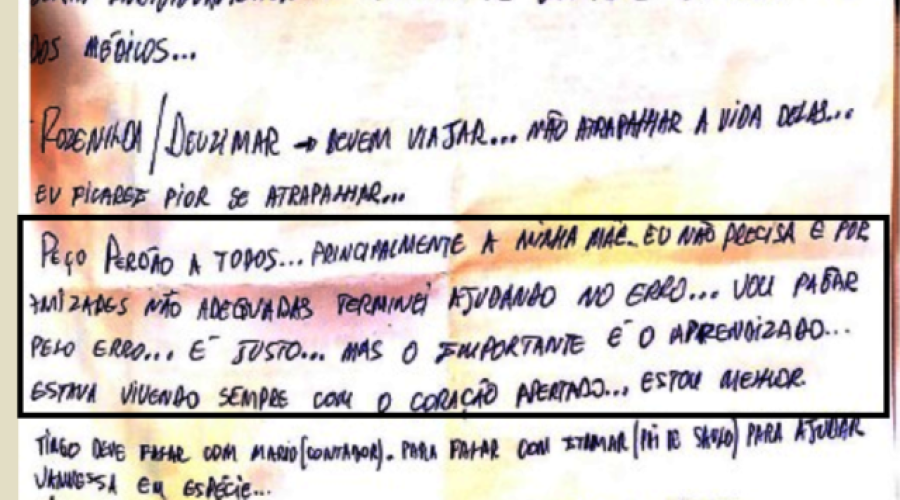 DOS MÉDICOS...
ROZENILDA / DEUZIMAR → DEVEM VIAJAR... NÃO ATRAPALHAR A VIDA DELAS...
EU FICAREI PIOR SE ATRAPALHAR...
PEÇO PERDÃO A TODOS... PRINCIPALMENTE A MINHA MÃE. EU NÃO PRECISA E POR
AMIZADES NÃO ADEQUADAS TERMINEI AJUDANDO NO ERRO... VOU PAGAR
PELO ERRO... É JUSTO... MAS O IMPORTANTE É O APRENDIZADO...
ESTAVA VIVENDO SEMPRE COM O CORAÇÃO APERTADO... ESTOU MELHOR.
TIAGO DEVE FALAR COM MARIO (CONTADOR). PARA FALAR COM ITAMAR (PAI DE SAULO) PARA AJUDAR
VANNESSA EM ESPÉCIE...